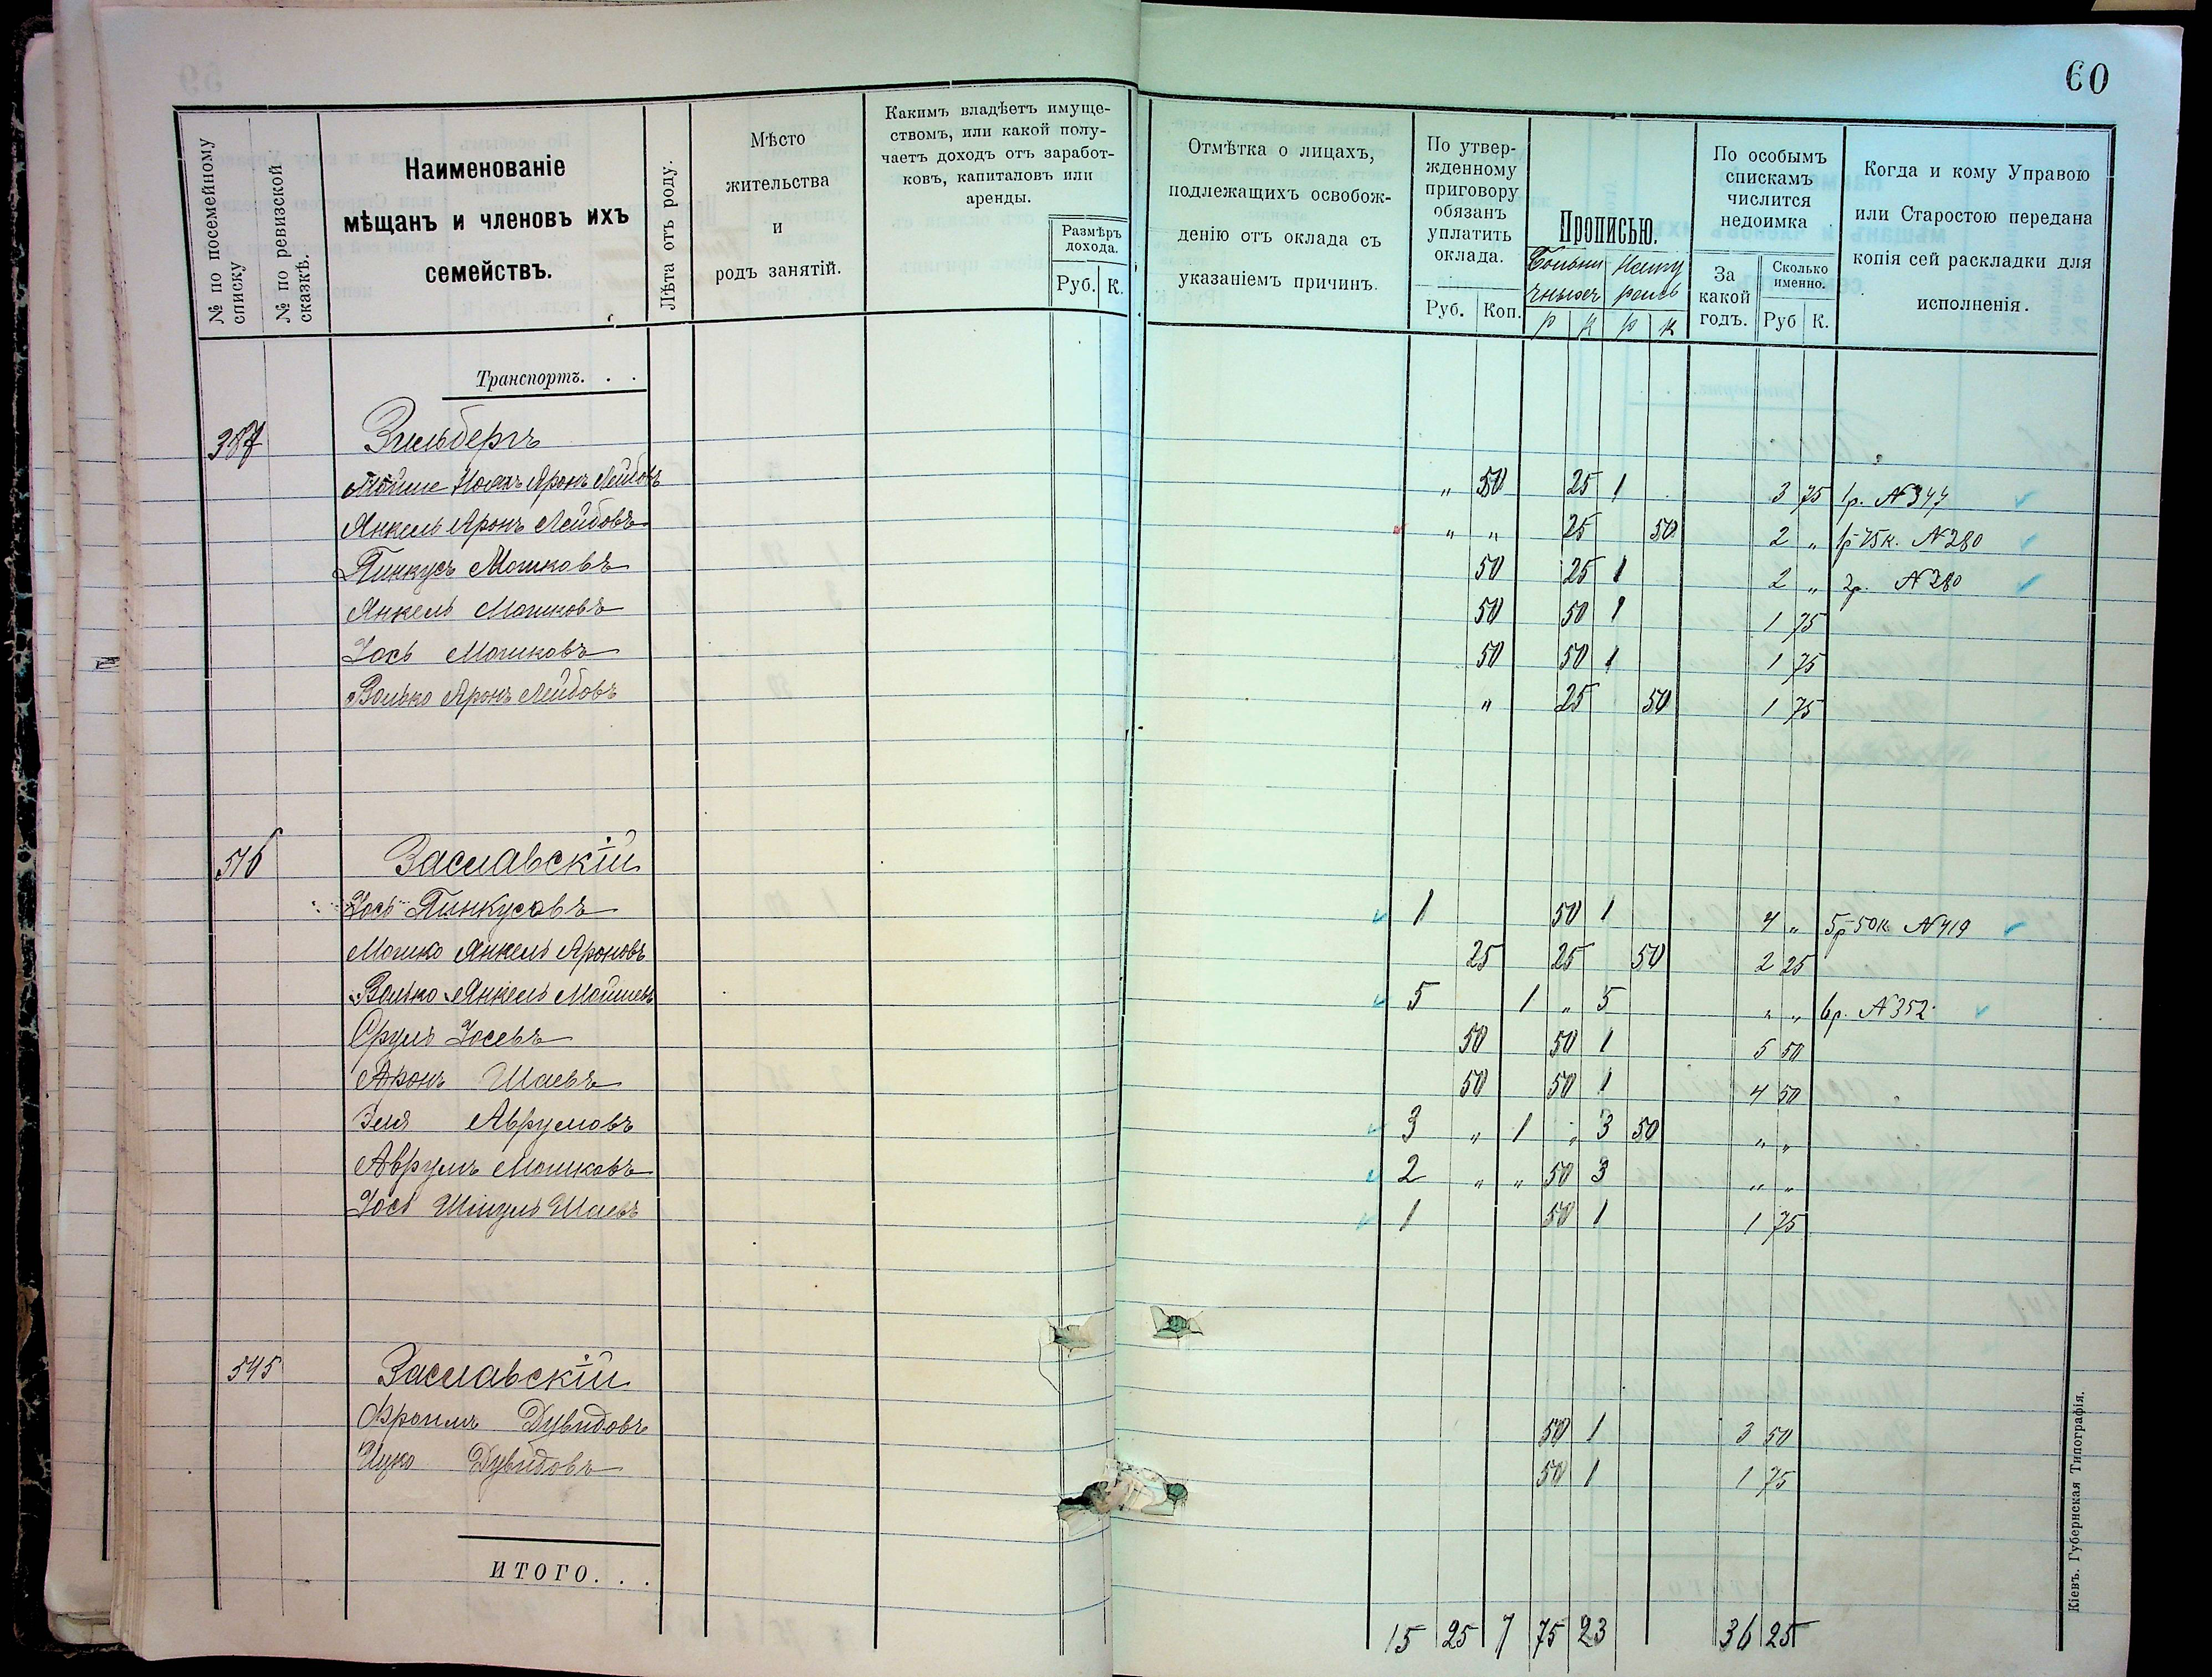 60
№ по посемейному списку
№ по ревизской сказкѣ.
Наименованіе
мѣщанъ и членовъ ихъ
семействъ.
Лѣта отъ роду.
Мѣсто
жительства
и
родъ занятій.
Какимъ владѣетъ имуще-
ствомъ, или какой полу-
чаетъ доходъ отъ заработ-
ковъ, капиталовъ или
аренды.
Размѣръ
дохода.
Руб. К.
Отмѣтка о лицахъ,
подлежащихъ освобож-
денію отъ оклада съ
указаніемъ причинъ.
По утвер-
жденному
приговору
обязанъ
уплатить
оклада.
Руб. Коп.
Прописью.
р к р к
По особымъ
спискамъ
числится
недоимка
За
какой
годъ.
Сколько
именно.
Руб К.
Когда и кому Управою
или Старостою передана
копія сей раскладки для
исполненія.
Транспортъ. . .
387 Зильбергъ
Мойше Ноахъ Аронъ Лейбовъ „ 50 25 1 3 75 1р. №344
Янкель Аронъ Лейбовъ „ „ 25 50 2 „ 1р 75к. №280
Пинкусъ Мошковъ 50 25 1 2 „ 2р. №280
Янкель Мошковъ 50 50 1 1 75
Іось Мошковъ 50 50 1 1 75
Волько Аронъ Лейбовъ „ 25 50 1 75
516 Заславскій
Іось Пинкусовъ 1 50 1 4 „ 5р 50к №419
Мошко Янкель Ароновъ 25 25 50 2 25
Волько Янкель Мошиевъ 5 1 „ 5 „ „ 6р. №352.
Сруль Іосевъ 50 50 1 5 50
Аронъ Шаевъ 50 50 1 4 50
Эля Аврумовъ 3 „ 1 „ 3 50 „ „
Аврумъ Мошковъ 2 „ „ 50 3 „ „
Іось Шмуль Шаевъ 1 50 1 1 75
545 Заславскій
Фроимъ Дувидовъ 50 1 3 50
Ицко Дувидовъ 50 1 1 75
ИТОГО. . .
15 25 7 75 23 36 25
Кіевъ. Губернская Типографія.